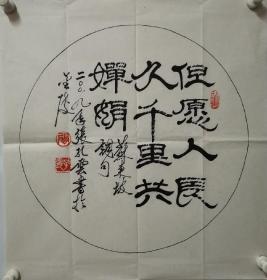 但愿人长
久千里共
婵娟
苏东坡
词句
二〇〇九年张孔云书于
金陵